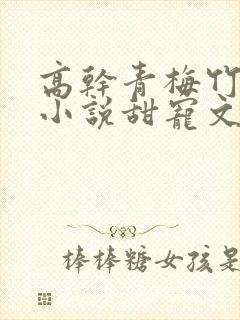 高幹青梅竹
小說甜寵文
棒棒糖女孩是